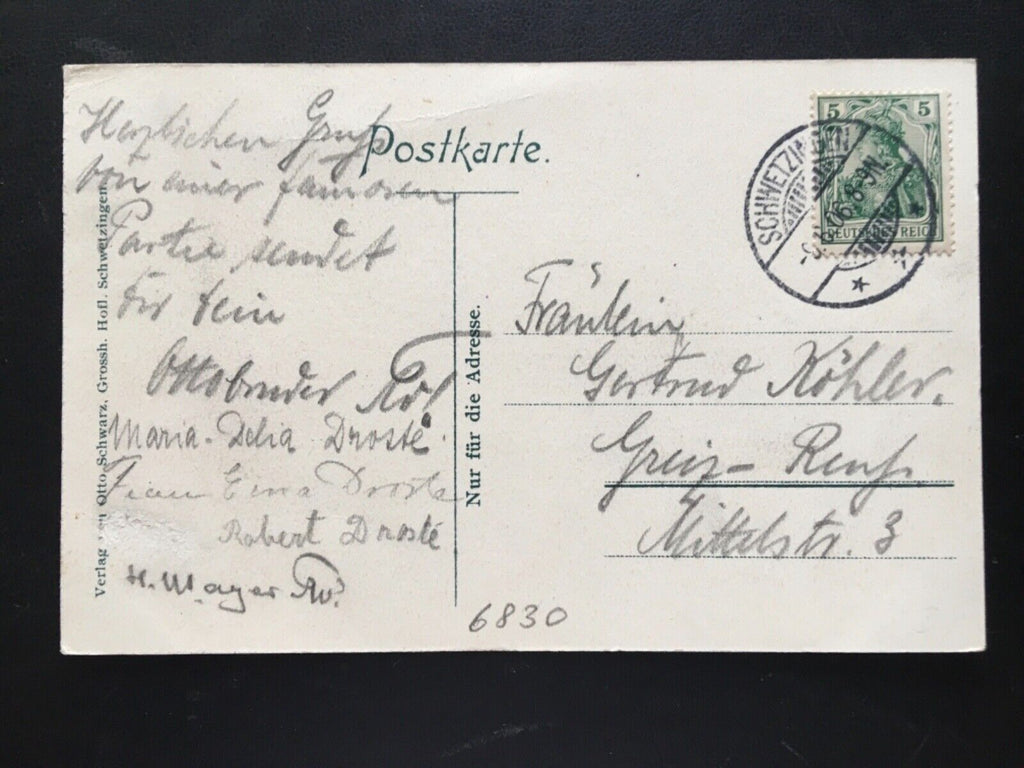 Postkarte.
Herzlichen Gruß
von einer famosen
Partie sendet
Dir Dein
Ottobruder
Maria-Delia Drosté
Frau Drosté
Robert Drosté
H. Mayer
Verlag von Otto Schwarz, Grossh. Hofl. Schwetzingen.
Nur für die Adresse.
5 5
DEUTSCHES REICH
SCHWETZINGEN
06.8-9N.
Fräulein
Gertrud Köhler.
Greiz-Reuß.
Mittelstr. 3
6830